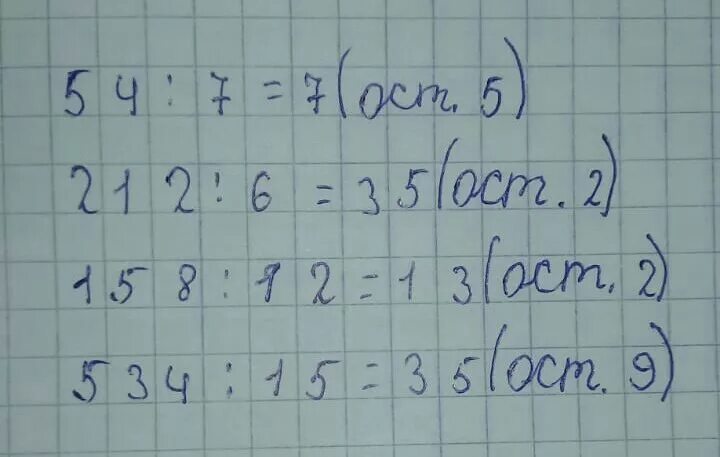 54 : 7 = 7 (ост. 5)
212 : 6 = 35 (ост. 2)
158 : 12 = 13 (ост. 2)
534 : 15 = 35 (ост. 9)